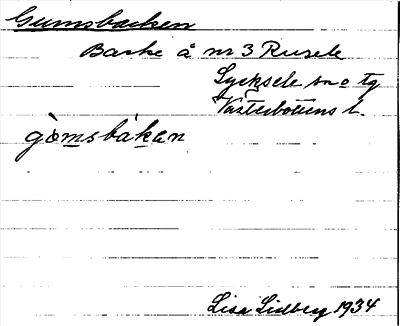 Gumsbacken
Backe å nr 3 Rusele
Lycksele sn o tg
Västerbottens l.
gòmsbákan
Lisa Lidberg 1934